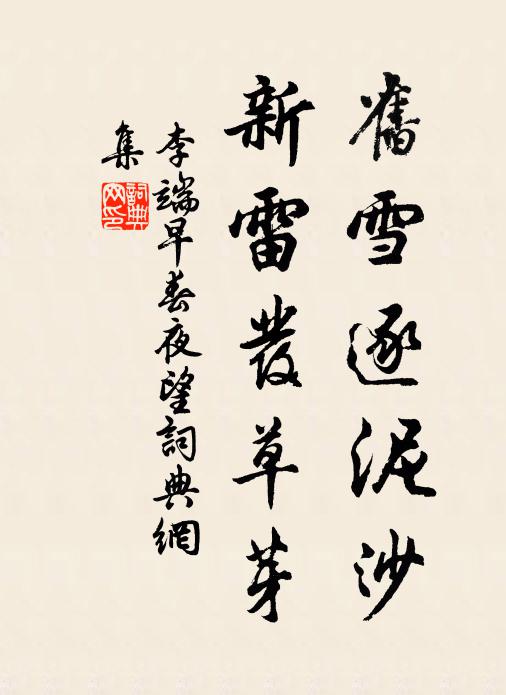 舊雪逐泥沙
新雷發草芽
李端早春夜望詞典網
集
詞典網印